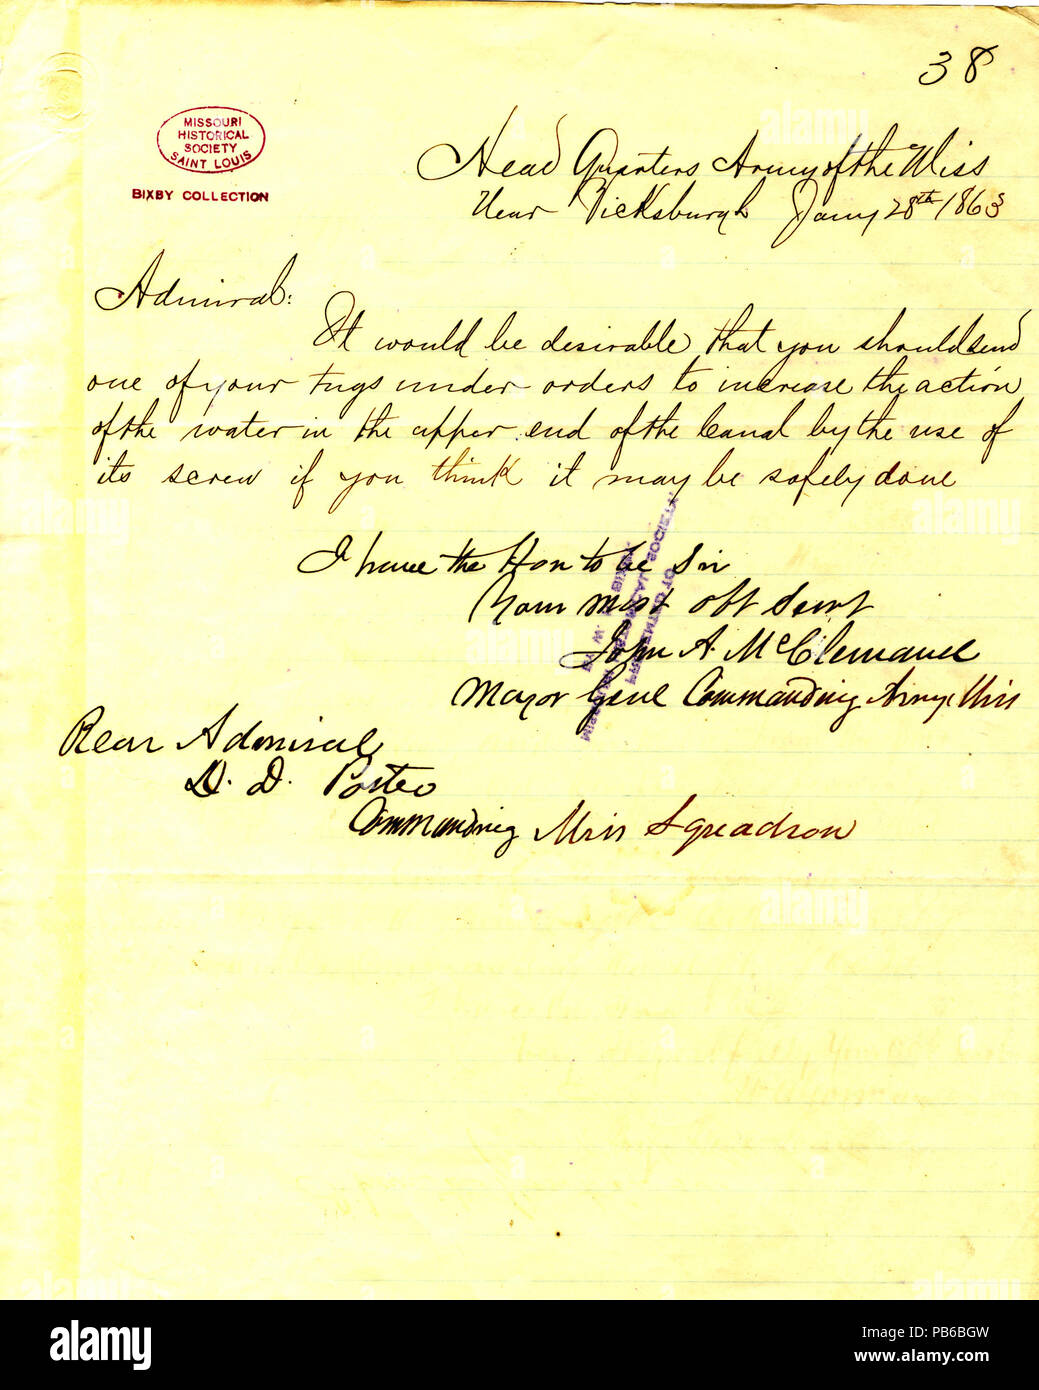 38
MISSOURI
HISTORICAL
SOCIETY
SAINT LOUIS
BIXBY COLLECTION
Head Quarters Army of the Miss
Near Vicksburgh Jany 28th 1863
Admiral:
It would be desirable that you should send
one of your tugs under orders to increase the action
of the water in the upper end of the Canal by the use of
its screw if you think it may be safely done
I have the Hon to be Sir
Your most obt Servt
John A. McClernand
Major Genl Commanding Army Miss
Rear Admiral
D. D. Porter
Commanding Miss Squadron
alamy
Image ID: PB6BGW
www.alamy.com